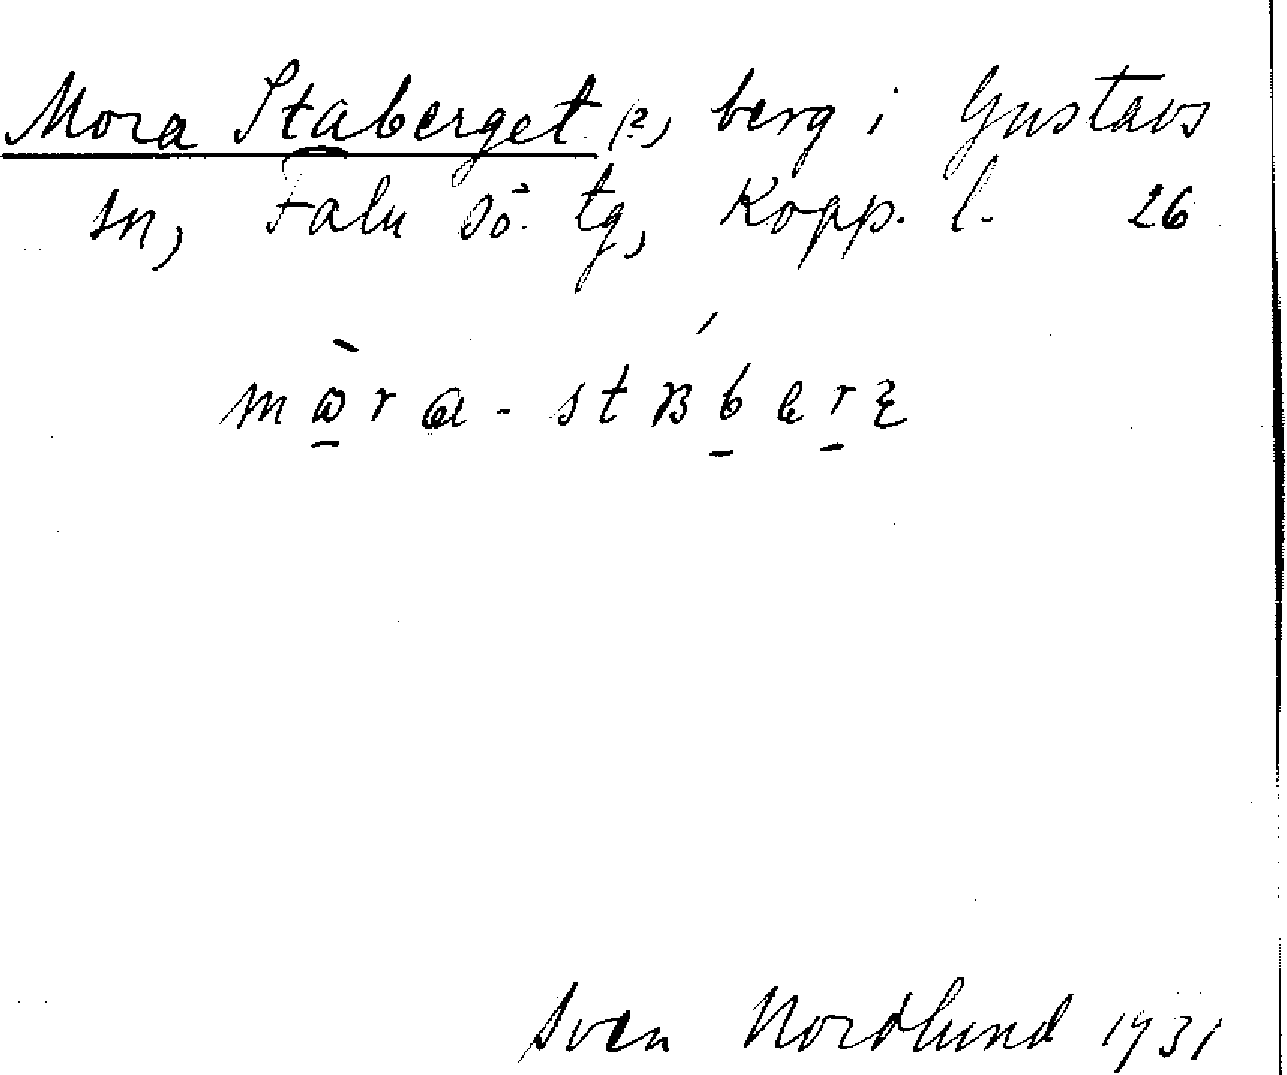 Mora Staberget (?), berg i Gustavs
sn, Falu sö. tg, Kopp. l. 26
Sven Nordlund 1931